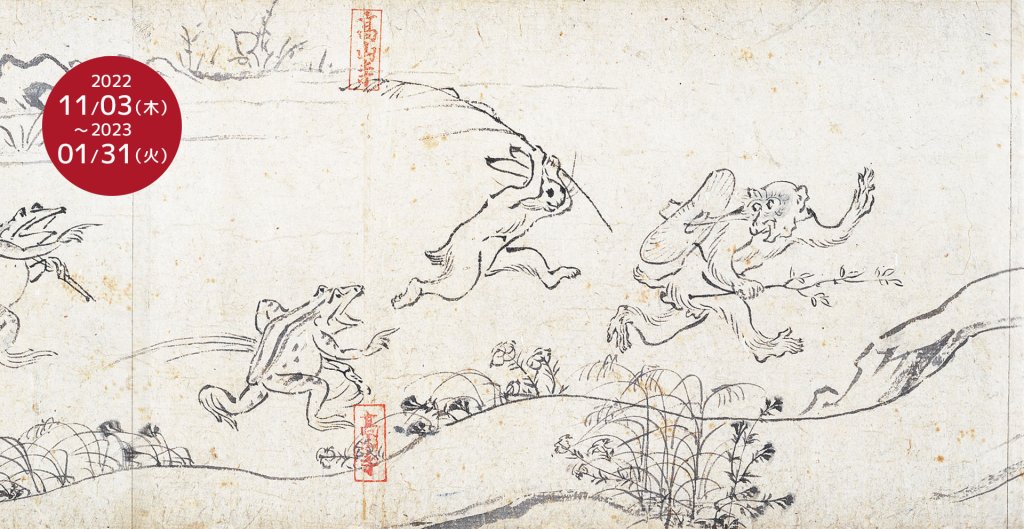 2022
11/03(木)
~2023
01/31(火)
高山寺
高山寺